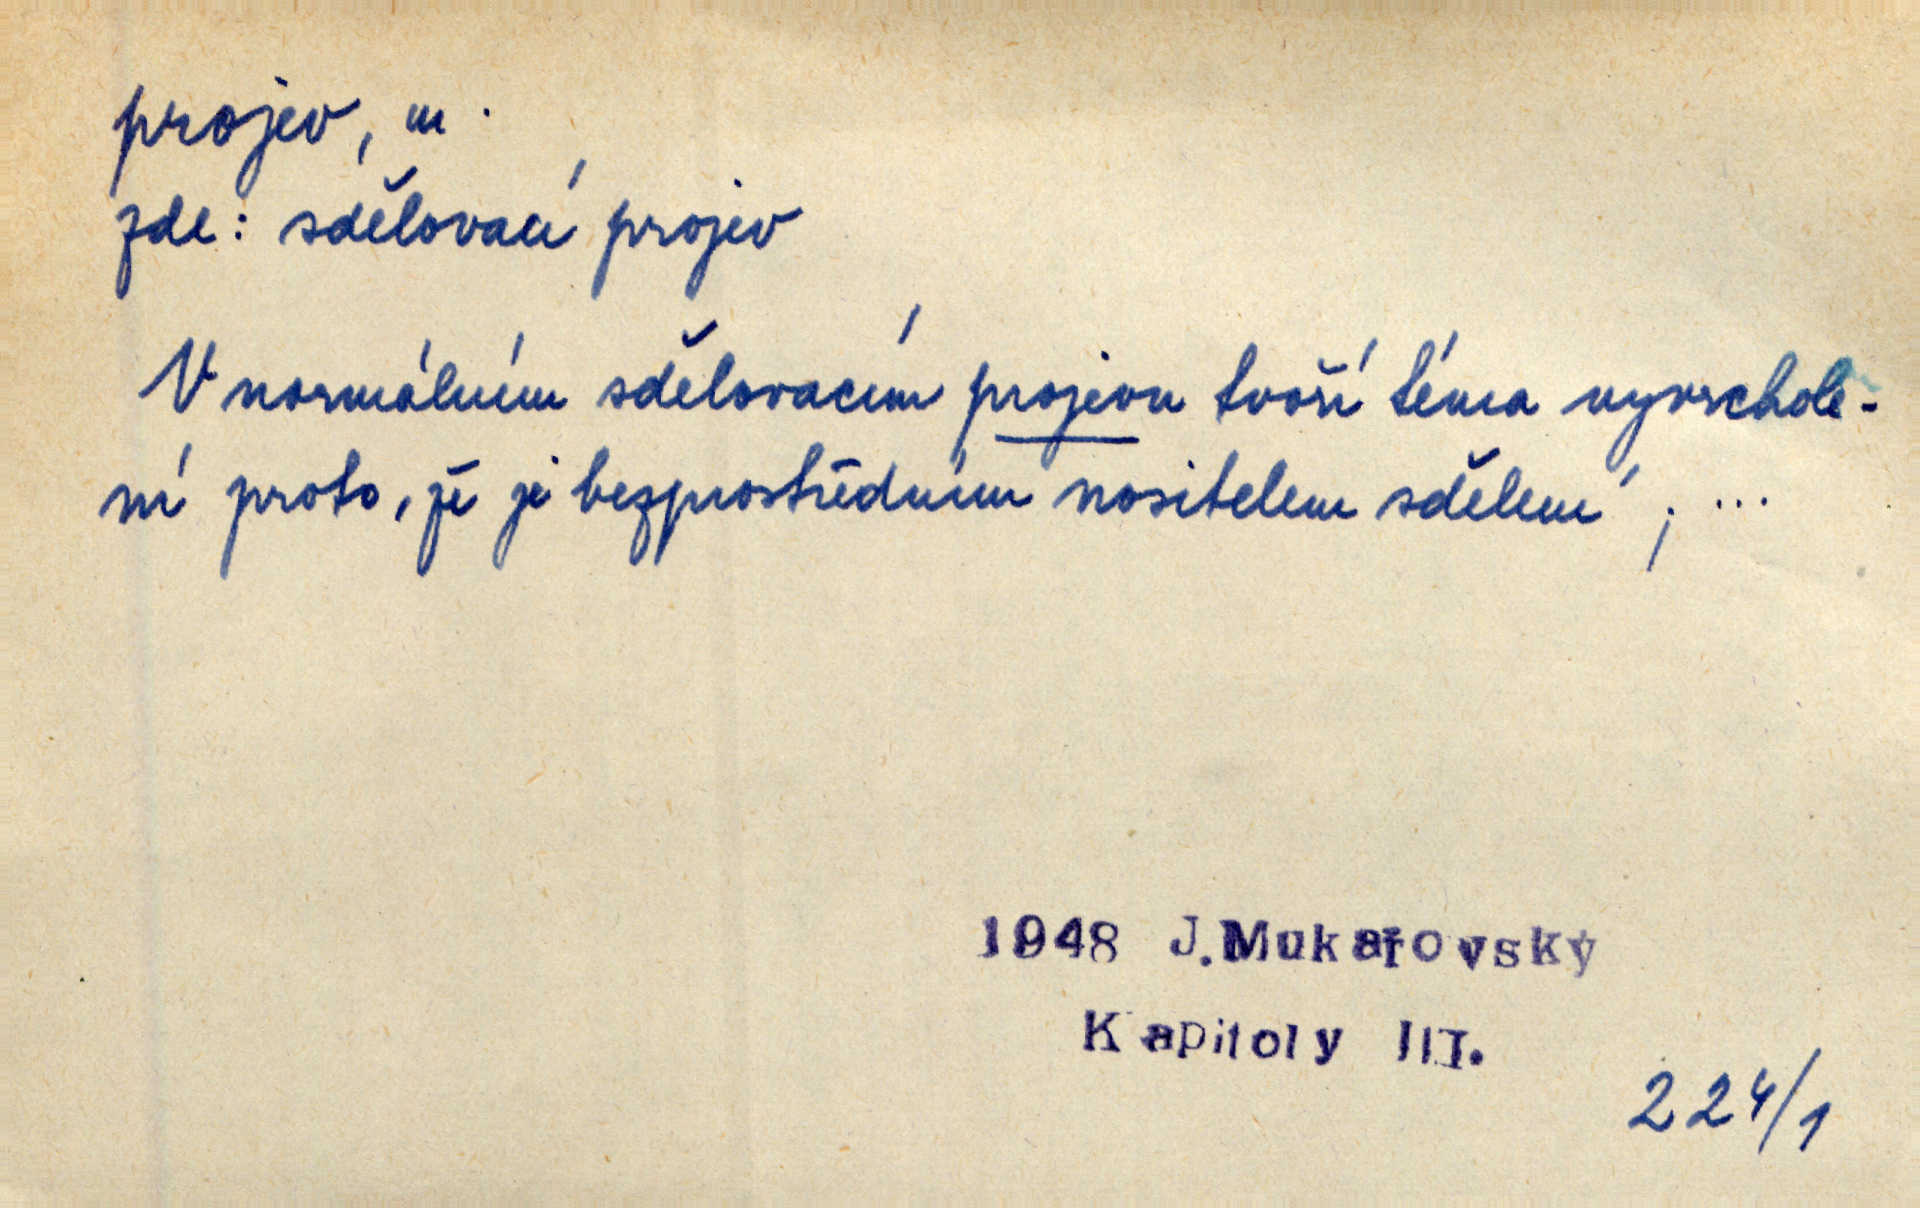 projev, m.
zde: sdělovací projev
V normálním sdělovacím projevu tvoří téma vyvrchole-
ní proto, že je bezprostředním nositelem sdělení; ...
1948 J.Mukařovský
Kapitoly III.
224/1